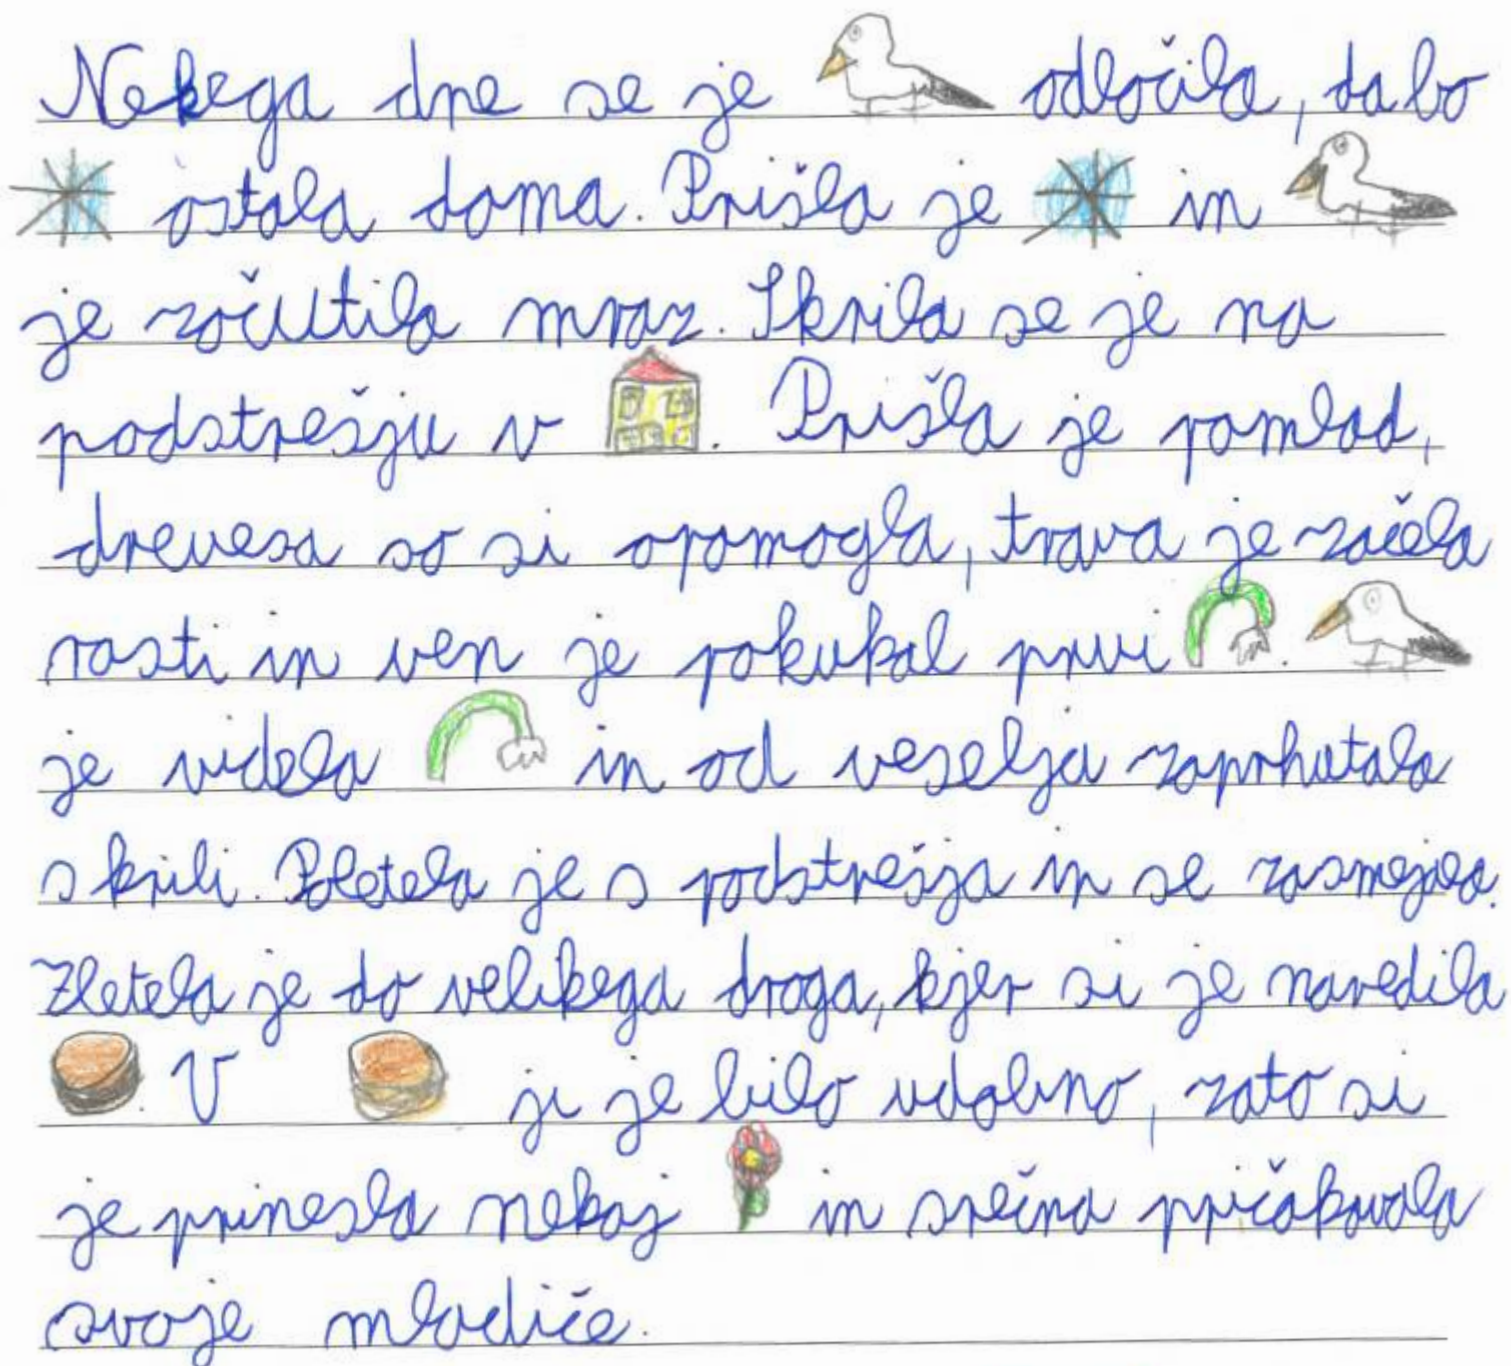 Nekega dne se je odločila, da bo
ostala doma. Prišla je in
je začutila mraz. Skrila se je na
podstrešju v . Prišla je pomlad,
drevesa so si opomogla, trava je začela
rasti in ven je pokukal prvi .
je videla in od veselja zaprhutala
s krili. Poletela je s podstrešja in se zasmejala.
Zletela je do velikega droga, kjer si je naredila
. V ji je bilo udobno, zato si
je prinesla nekaj in srečna pričakovala
svoje mladiče.